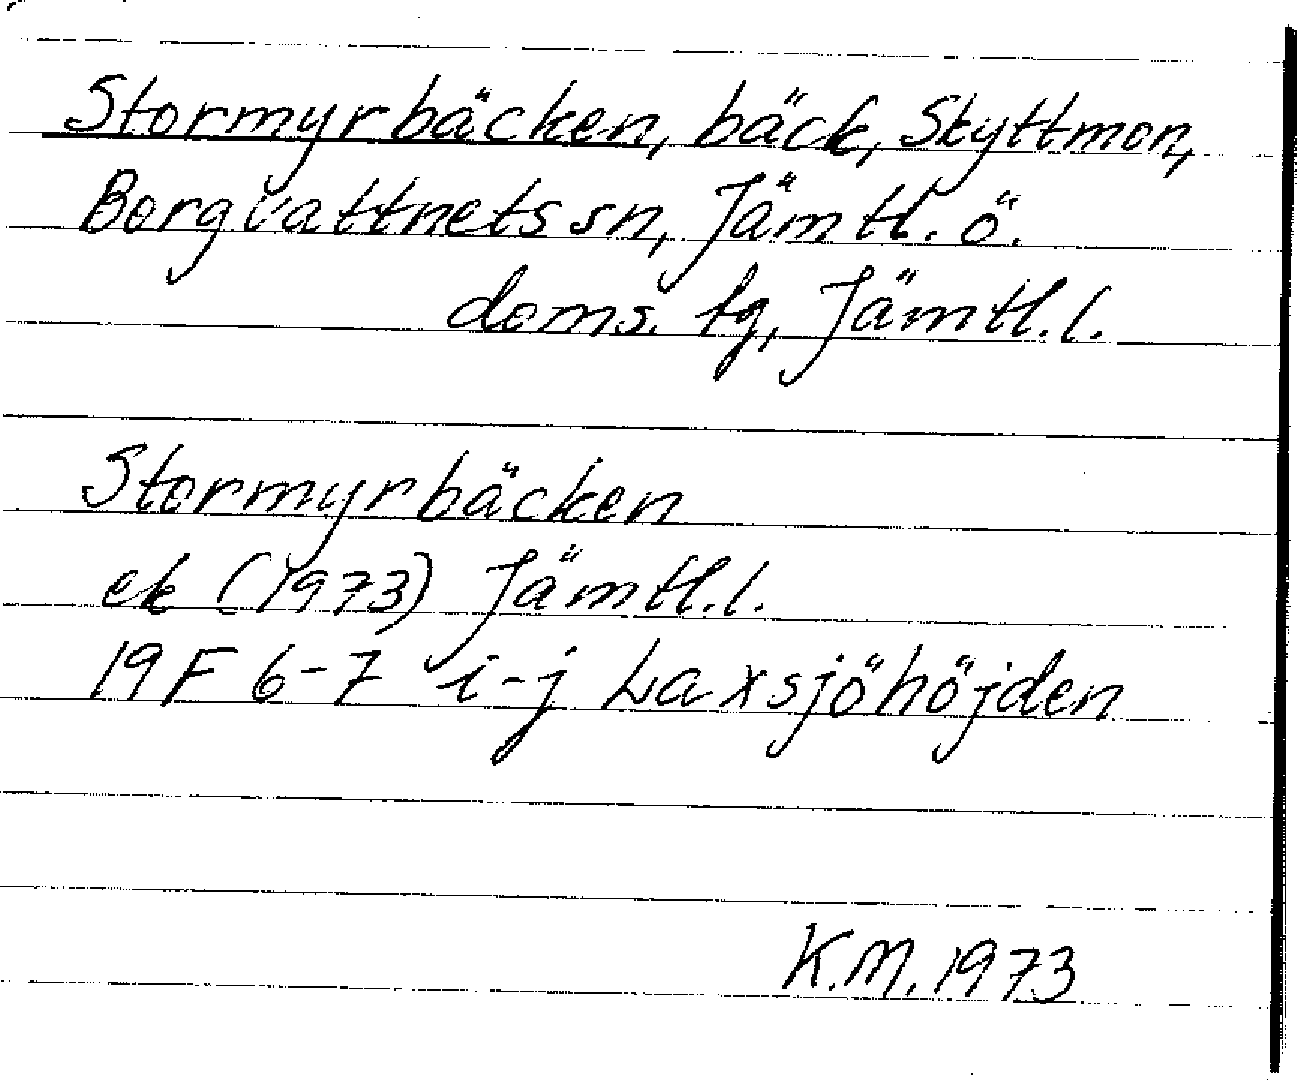 Stormyrbäcken, bäck, Skyttmon,
Borgvattnets sn, Jämtl. ö.
doms. tg, Jämtl. l.
Stormyrbäcken
ek (1973) Jämtl. l.
19 F 6-7 i-j Laxsjöhöjden
K.M. 1973